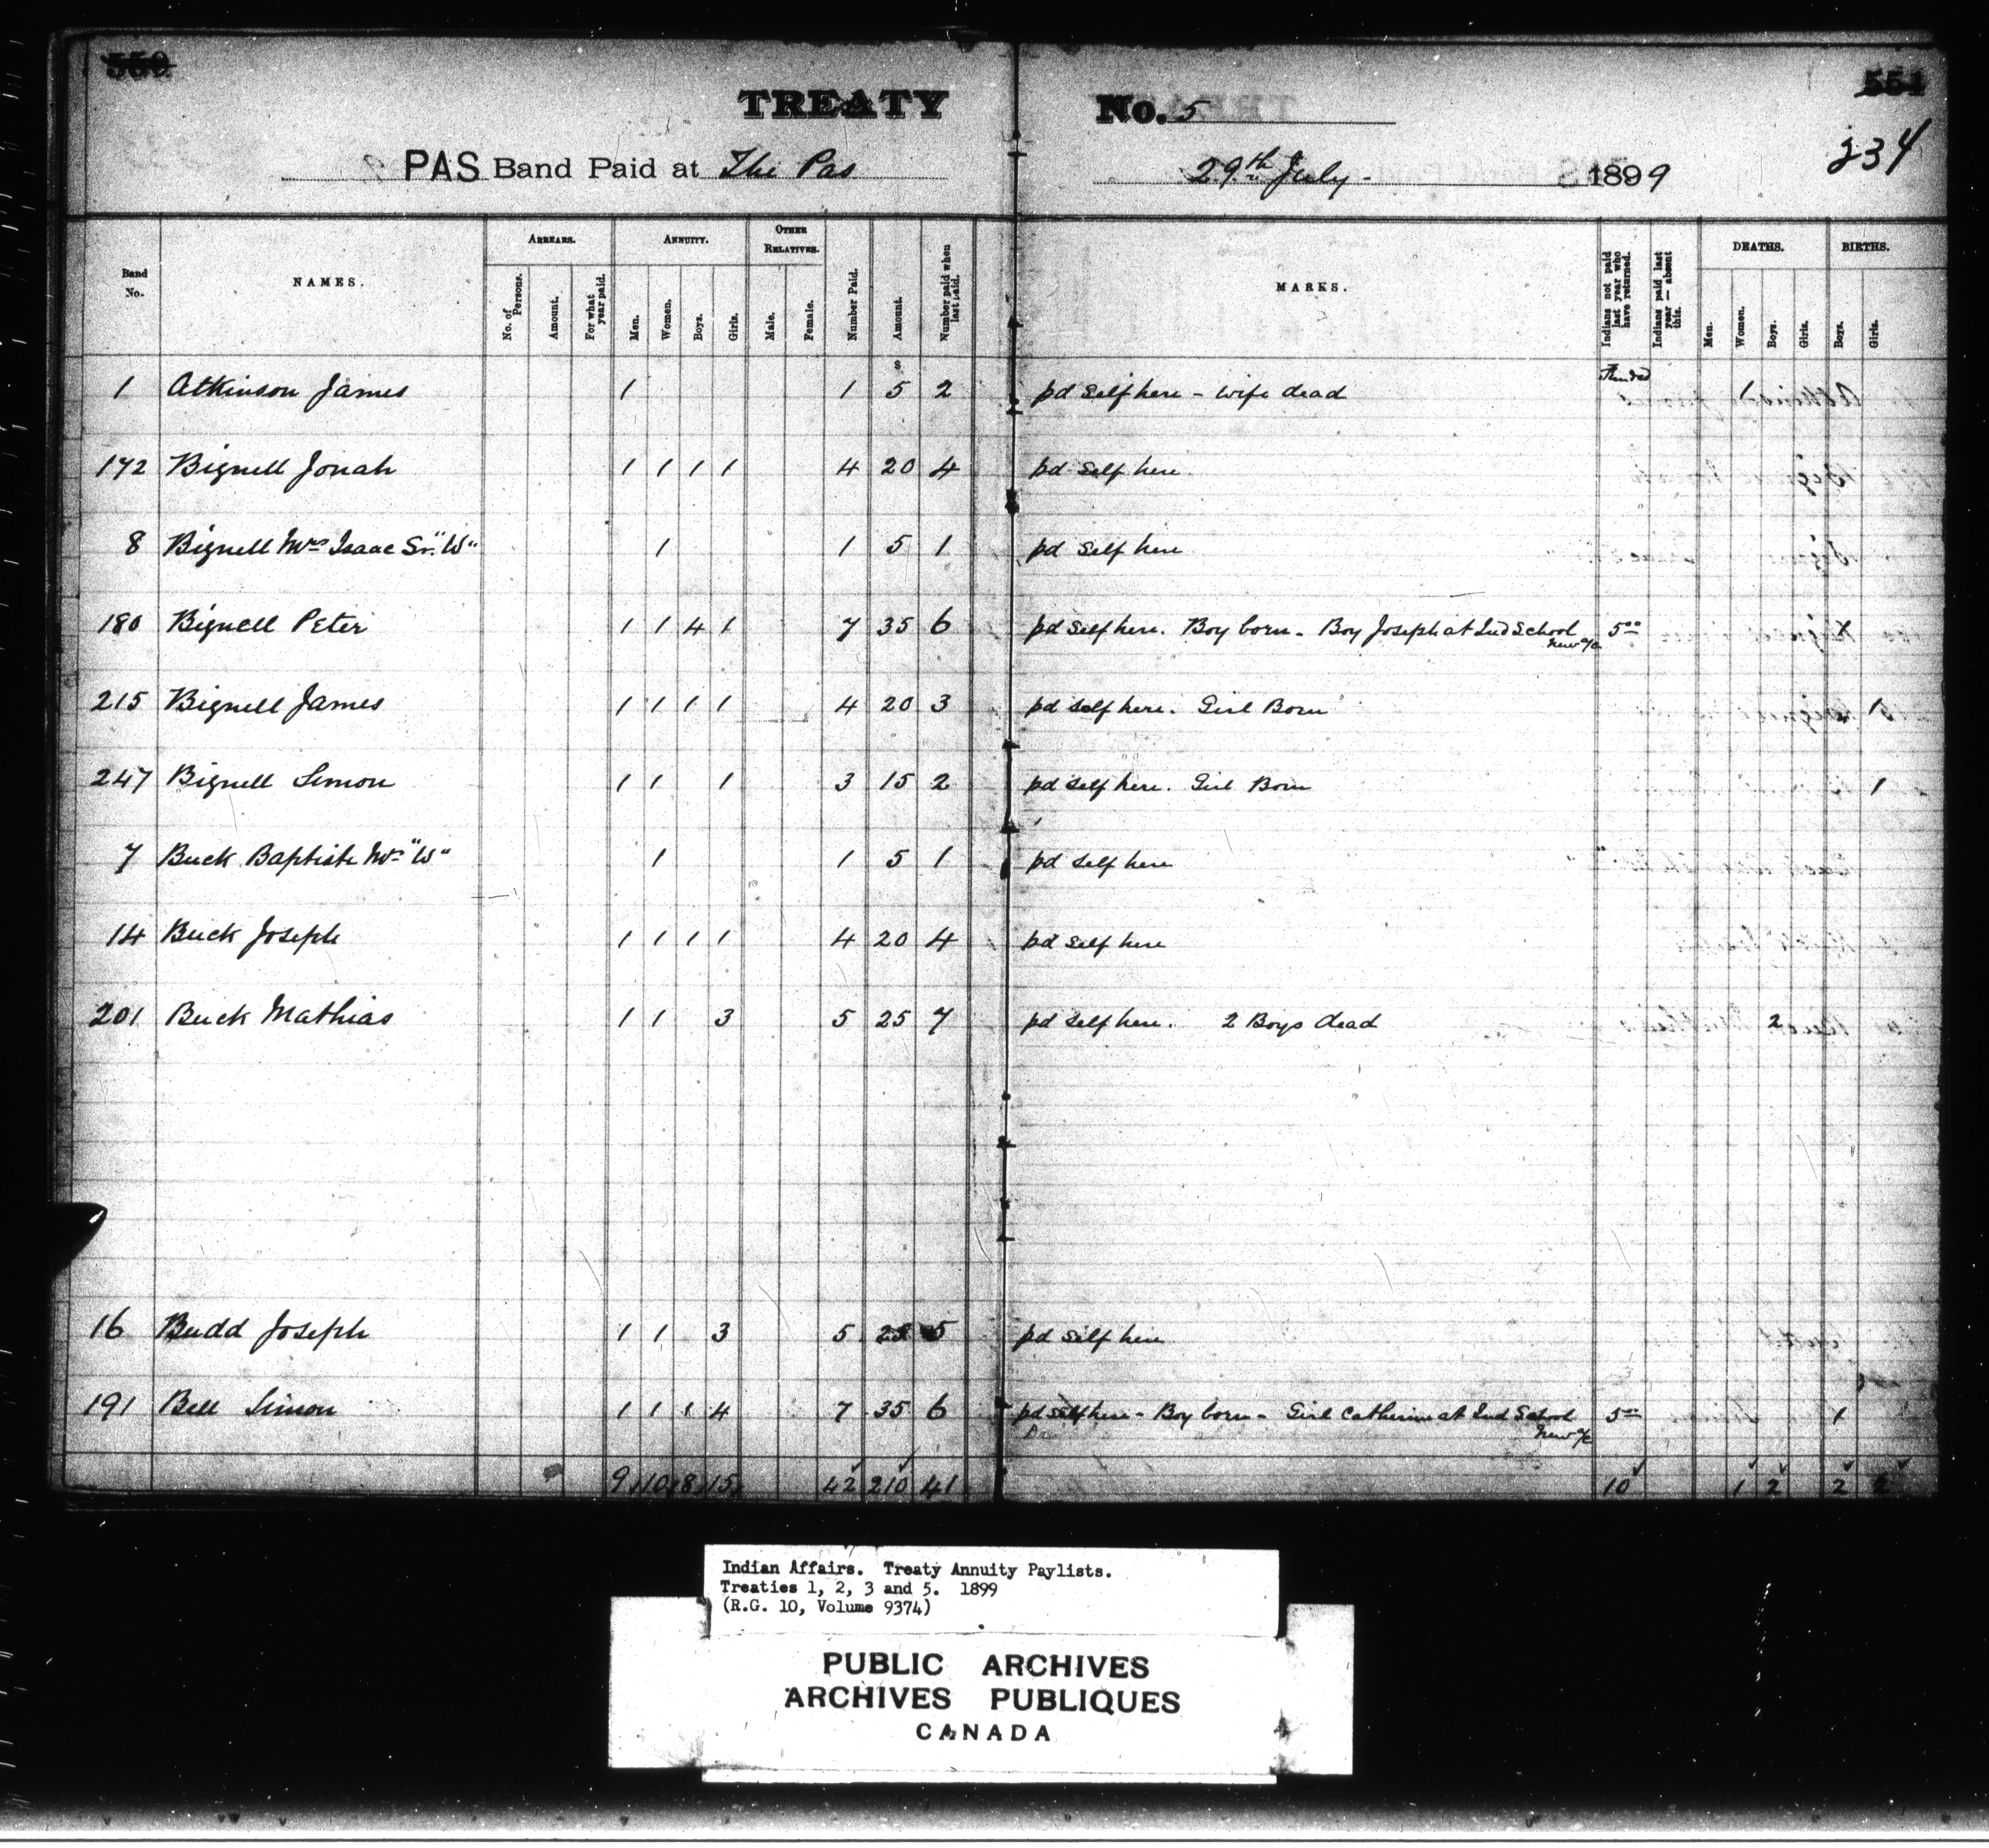 550
551
TREATY No. 5
234
PAS Band Paid at The Pas 29th July 1899
Band No. NAMES. ARREARS. ANNUITY. OTHER RELATIVES. Number Paid. Amount. Number paid when last paid. MARKS. Indians not paid last year who have returned. Indians paid last year — absent this. DEATHS. BIRTHS.
No. of Persons. Amount. For what year paid. Men. Women. Boys. Girls. Male. Female. Men. Women. Boys. Girls. Boys. Girls.
$
1 Atkinson James 1 1 5 2 pd self here - wife dead 1
172 Bignell Jonah 1 1 1 1 4 20 4 pd self here
8 Bignell Mrs Isaac Sr. "W" 1 1 5 1 pd self here
180 Bignell Peter 1 1 4 1 7 35 6 pd self here. Boy born - Boy Joseph at Ind School 5 00 1
New a/c
215 Bignell James 1 1 1 1 4 20 3 pd self here. Girl Born 1
247 Bignell Simon 1 1 1 3 15 2 pd self here. Girl Born 1
7 Buck Baptiste Mrs "W" 1 1 5 1 pd self here
14 Buck Joseph 1 1 1 1 4 20 4 pd self here
201 Buck Mathias 1 1 3 5 25 7 pd self here. 2 Boys dead 2
16 Budd Joseph 1 1 3 5 25 5 pd self here
191 Bell Simon 1 1 1 4 7 35 6 pd self here - Boy born - Girl Catherine at Ind School 5 00 1
New a/c
9 10 8 15 42 210 41 10 1 2 2 2
Indian Affairs. Treaty Annuity Paylists.
Treaties 1, 2, 3 and 5. 1899
(R.G. 10, Volume 9374)
PUBLIC ARCHIVES
ARCHIVES PUBLIQUES
CANADA